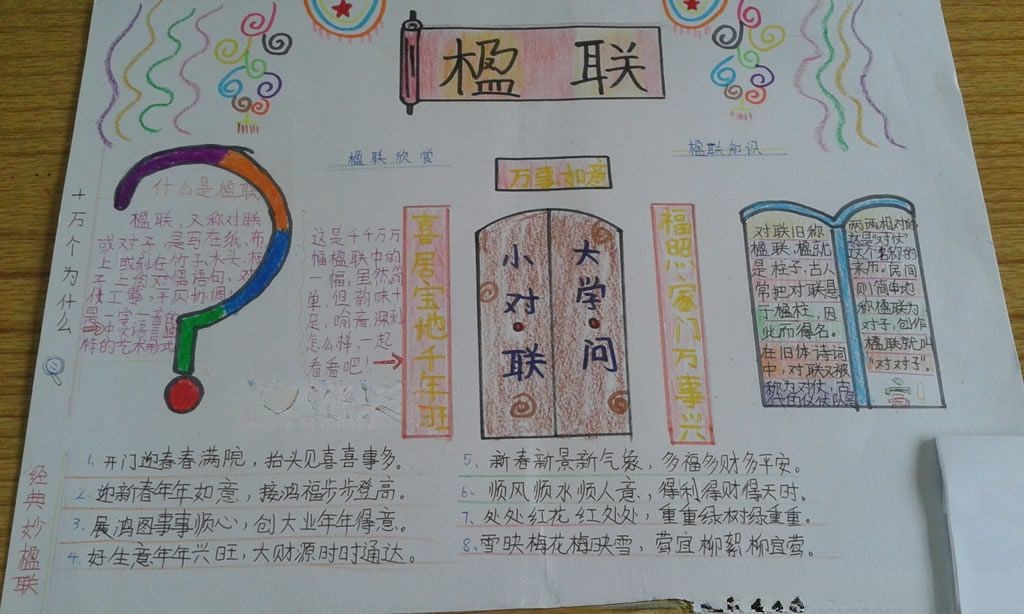 楹联
楹联欣赏
楹联知识
十万个为什么
什么是楹联
楹联，又称对联
或对子，是写在纸、布
上或刻在竹子、木头、柱
子上的对偶语句，对
仗工整，平仄协调，
是一字一音的
中文语言独
特的艺术形式
这是千千万万
幅楹联中的
一幅，虽然简
单，但韵味十
足，喻音深刻
怎么样，一起
看看吧！
万事如意
喜居宝地千年旺
小对联
大学问
福照家门万事兴
对联旧称
楹联，楹就
是柱子，古人
常把对联悬
于楹柱，因
此而得名。
在旧体诗词
中，对联又被
称为对仗，古
代的仪仗队是
两两相对的
这是"对仗"
这个名称的
来历。民间
则简单地
称楹联为
对子，创作
楹联就叫
"对对子"。
经典妙楹联
1、开门迎春春满院，抬头见喜喜事多。
2、迎新春年年如意，接鸿福步步登高。
3、展鸿图事事顺心，创大业年年得意。
4、好生意年年兴旺，大财源时时通达。
5、新春新景新气象，多福多财多平安。
6、顺风顺水顺人意，得利得财得天时。
7、处处红花红处处，重重绿树绿重重。
8、雪映梅花梅映雪，莺宜柳絮柳宜莺。